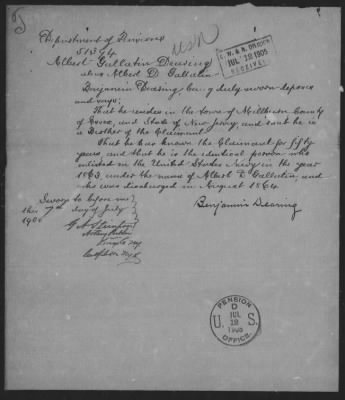 Department of Pensions
51394
USN
Albert Gallatin Dearing
alias Albert D. Gallatin
C. W. & N. DIVISION
JUL 12 1905
RECEIVED
Benjamin Dearing, being duly sworn deposes
and says;
That he resides in the town of Millburn County
of Essex, and State of New Jersey, and that he is
a Brother of the Claimant.
That he has known the Claimant for fifty
years, and that he is the identical person who
enlisted in the United States Navy in the year
1863, under the name of Albert D. Gallatin, and
who was discharged in August 1864.
Sworn to before me
this 7th day of July
Benjamin Dearing
Notary Public
Kings Co NY
PENSION
D
JUL
12
U. S.
OFFICE.